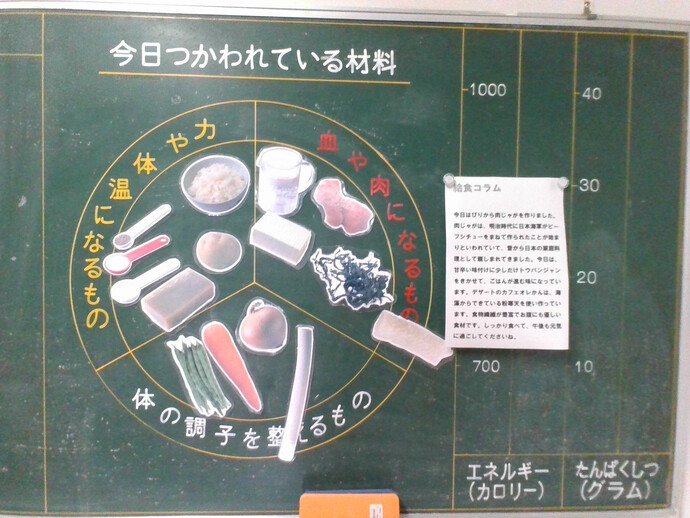 今日つかわれている材料
体や力
温になるもの
血や肉になるもの
体の調子を整えるもの
1000
700
40
30
20
10
エネルギー
(カロリー)
たんぱくしつ
(グラム)
給食コラム
今日はぴりから肉じゃがを作りました。
肉じゃがは、明治時代に日本海軍がビー
フシチューをまねて作られたことが始ま
りといわれていて、昔から日本の家庭料
理として親しまれてきました。今日は、
甘辛い味付けに少しだけトウバンジャン
をきかせて、ごはんが進む味になってい
ます。デザートのカフェオレかんは、海
藻からできている粉寒天を使い作ってい
ます。食物繊維が豊富でお腹にも優しい
食材です。しっかり食べて、午後も元気
に過ごしてくださいね。